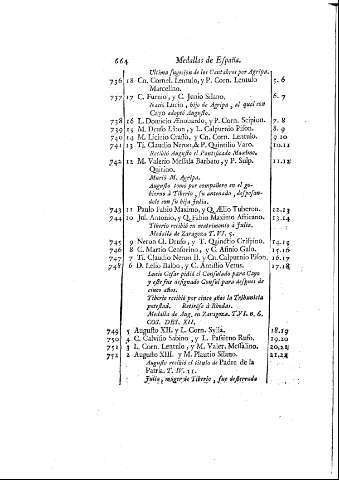 664 Medallas de España.
Ultima sugecion de los Cantabros por Agripa.
736 18 Cn. Cornel. Lentulo, y P. Corn. Lentulo 5. 6
Marcelino.
737 17 C. Furnio, y C. Junio Silano. 6. 7
Nació Lucio, hijo de Agripa, al qual con
Cayo adoptó Augusto.
738 16 L. Domicio Ænobardo, y P. Corn. Scipion. 7. 8
739 15 M. Druso Libon, y L. Calpurnio Pison. 8. 9
740 14 M. Licinio Crasso, y Cn. Corn. Lentulo. 9. 10
741 13 Ti. Claudio Neron, y P. Quintilio Varo. 10. 11
Recibió Augusto el Pontificado Maximo.
742 12 M. Valerio Messala Barbato, y P. Sulp. 11. 12
Quirino.
Murió M. Agripa.
Augusto tomó por compañero en el go-
bierno à Tiberio, su antenado, desposan-
dole con su hija Julia.
743 11 Paulo Fabio Maximo, y Q. Ælio Tuberon. 12. 13
744 10 Jul. Antonio, y Q. Fabio Maximo Africano. 13. 14
Tiberio recibió en matrimonio à Julia.
Medalla de Zaragoza T. VI. 5.
745 9 Neron Cl. Druso, y T. Quinctio Crispino. 14. 15
746 8 C. Martio Censorino, y C. Asinio Galo. 15. 16
747 7 Ti. Claudio Neron II. y Cn. Calpurnio Pison. 16. 17
748 6 D. Lelio Balbo, y C. Antistio Vetus. 17. 18
Lucio Cesar pidió el Consulado para Cayo
y este fue designado Consul para despues de
cinco años.
Tiberio recibió por cinco años la Tribunicia
potestad. Retirose à Rhodas.
Medalla de Aug. en Zaragoza. T. VI. 6.
COS. DES. XII.
749 5 Augusto XII. y L. Corn. Sylla. 18. 19
750 4 C. Calvisio Sabino, y L. Passieno Rufo. 19. 20
751 3 L. Corn. Lentulo, y M. Valer. Messalino. 20. 21
752 2 Augusto XIII. y M. Plautio Silano. 21. 22
Augusto recibió el titulo de Padre de la
Patria. T. IV. 11.
Julia, muger de Tiberio, fue desterrada